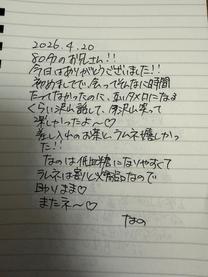 2026.4.20
80分のお兄さん!!
今日はありがとうございました!!
初めましてで、会ってそんなに時間
たってなかったのに、互いタメ口になる
くらい沢山話して、沢山笑って
楽しかったよ〜♡
差し入れのお茶と、ラムネ嬉しかっ
た!!
なのは低血糖になりやすくて
ラムネは割と必需品なので
助かります♡
またネ〜♡
なの